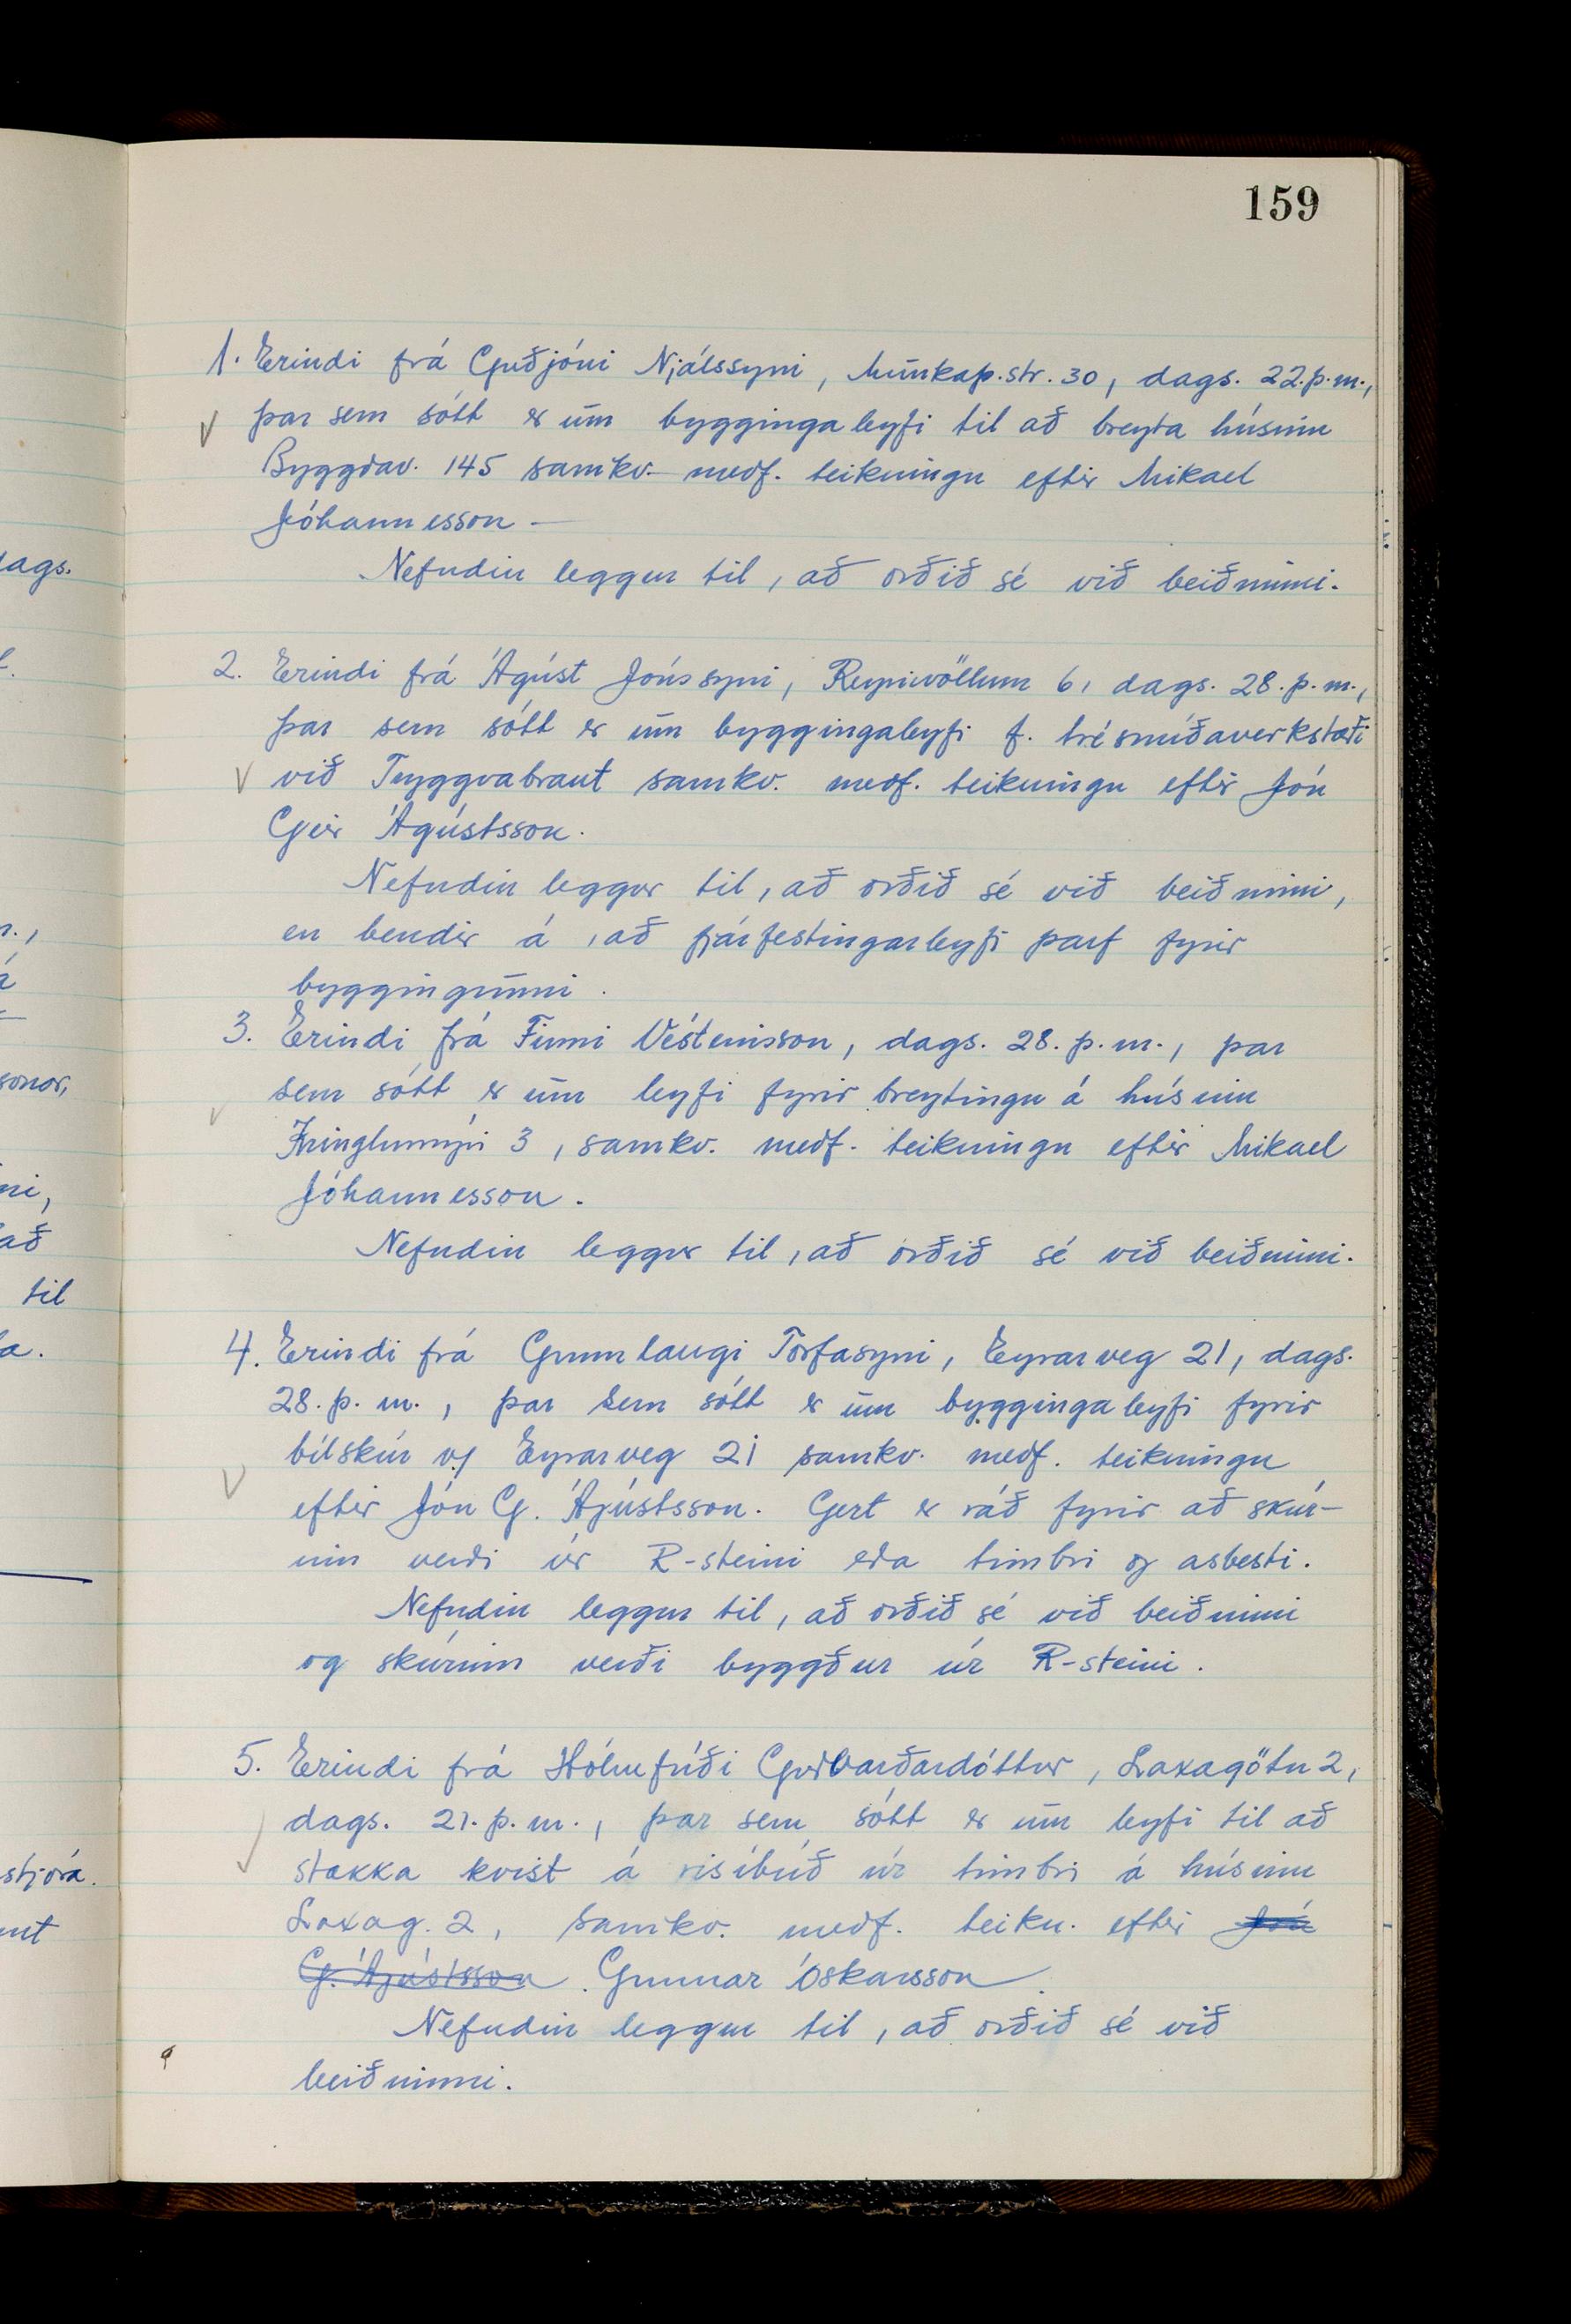 159
dags.
til
stjóra.
1. Erindi frá Guðjóni Njálssyni, Munkaþ.str. 30, dags. 22.þ.m.,
þar sem sótt er um byggingaleyfi til að breyta húsinu
Byggðav. 145 samkv. meðf. teikningu eftir Mikael
Jóhannesson –
Nefndin leggur til, að orðið sé við beiðninni.
2. Erindi frá Ágúst Jónssyni, Reynivöllum 6, dags. 28.þ.m.,
þar sem sótt er um byggingaleyfi f. trésmíðaverkstæði
við Tryggvabraut samkv. meðf. teikningu eftir Jón
Geir Ágústsson.
Nefndin leggur til, að orðið sé við beiðninni,
en bendir á, að fjárfestingarleyfi þarf fyrir
byggingunni.
3. Erindi frá Finni Vésteinsson, dags. 28.þ.m., þar
sem sótt er um leyfi fyrir breytingu á húsinu
Kringlumýri 3, samkv. meðf. teikningu eftir Mikael
Jóhannesson.
Nefndin leggur til, að orðið sé við beiðninni.
4. Erindi frá Gunnlaugi Torfasyni, Eyrarveg 21, dags.
28.þ.m., þar sem sótt er um byggingaleyfi fyrir
bílskúr v/ Eyrarveg 21 samkv. meðf. teikningu
eftir Jón G. Ágústsson. Gert er ráð fyrir að skúr-
inn verði úr R-steini eða timbri og asbesti.
Nefndin leggur til, að orðið sé við beiðninni
og skúrinn verði byggður úr R-steini.
5. Erindi frá Hólmfríði Guðvarðardóttur, Laxagötu 2,
dags. 21.þ.m., þar sem sótt er um leyfi til að
stækka kvist á risíbúð úr timbri á húsinu
Laxag. 2, samkv. meðf. teikn. eftir Jón
G. Ágústsson. Gunnar Óskarsson.
Nefndin leggur til, að orðið sé við
beiðninni.